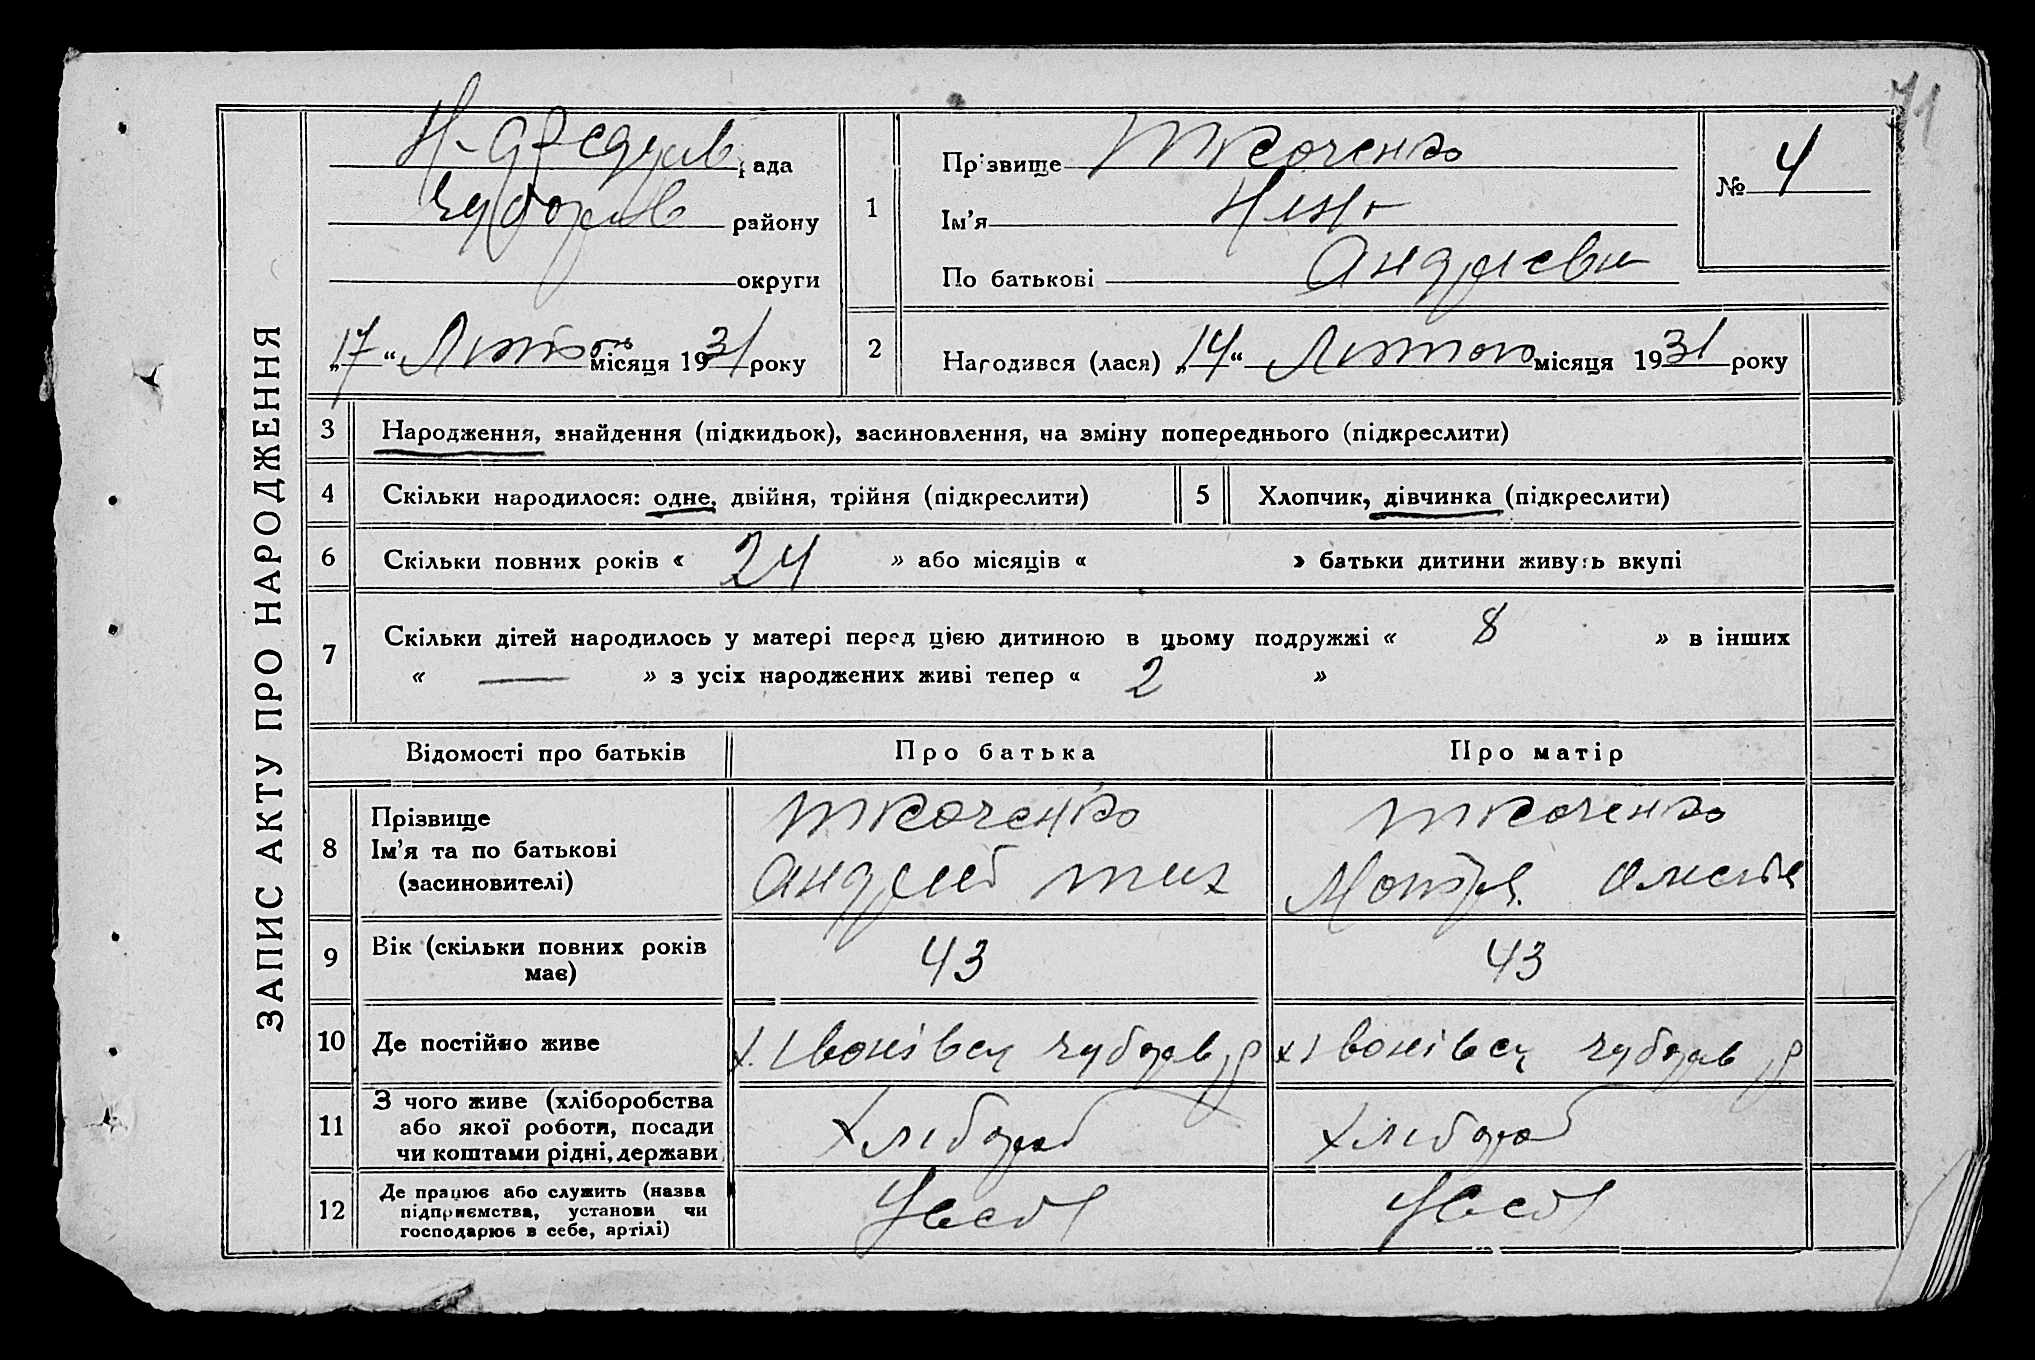 71
ЗАПИС АКТУ ПРО НАРОДЖЕННЯ
рада
Чубарів району
округи
„17“ Лютого місяця 1931 року
1
Прізвище Ткаченко
Ім'я Ніна
По батькові Андріевна
№ 4
2
Народився (лася) „14“ Лютого місяця 1931 року
3 Народження, знайдення (підкидьок), засиновлення, на зміну попереднього (підкреслити)
4 Скільки народилося: одне, двійня, трійня (підкреслити)
5 Хлопчик, дівчинка (підкреслити)
6 Скільки повних років « 24 » або місяців « » батьки дитини живуть вкупі
7 Скільки дітей народилось у матері перед цією дитиною в цьому подружжі « 8 » в інших
« — » з усіх народжених живі тепер « 2 »
Відомості про батьків Про батька Про матір
8 Прізвище
Ім'я та по батькові
(засиновителі)
Ткаченко
Андрий Тих
Ткаченко
Мотря
9 Вік (скільки повних років
має)
43 43
10 Де постійно живе
х. Іванівка Чубарів р
х Іванівка Чубарів р
11 З чого живе (хліборобства
або якої роботи, посади
чи коштами рідні, держави
Хлібороб Хлібороб
12 Де працює або служить (назва
підприємства, установи чи
господарює в себе, артілі)
У себе У себе